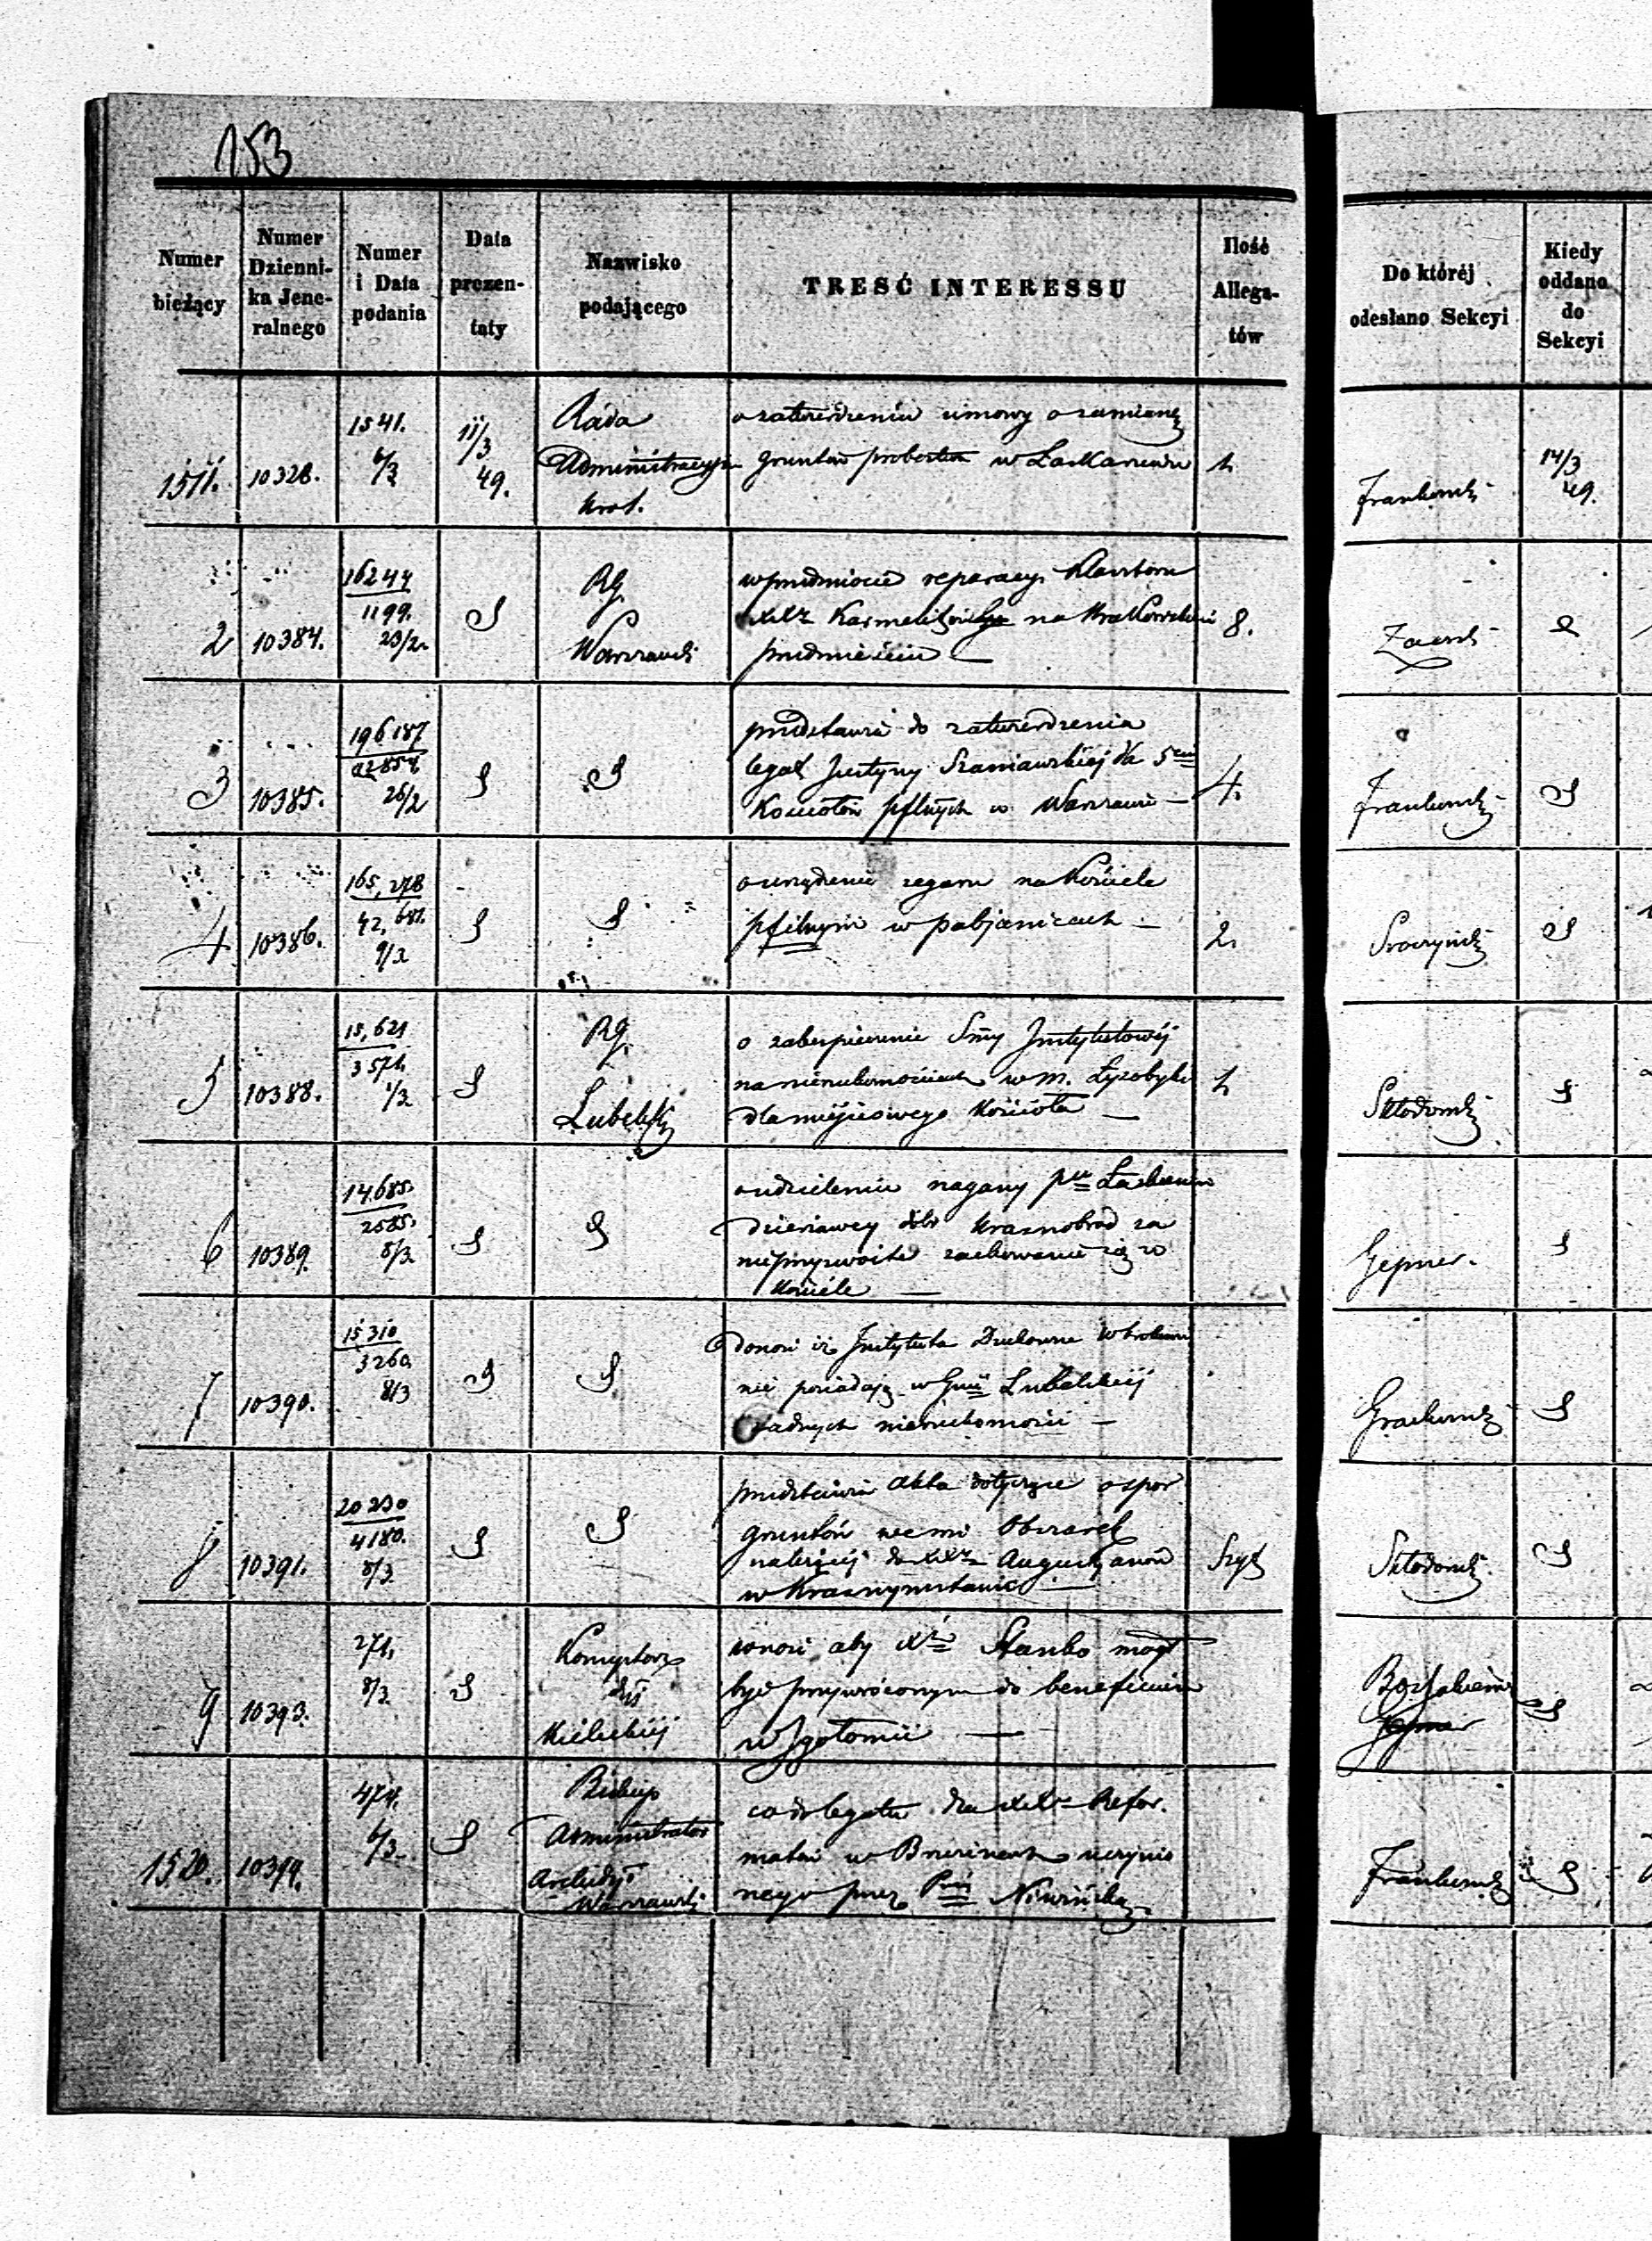 153
Numer bieżący
Numer Dzienni-ka Jene-ralnego
Numer i Data podania
Data prezen-taty
Nazwisko podającego
TREŚĆ INTERESSU
Ilość Allega-tów
Do któréj odesłano Sekcyi
Kiedy oddano do Sekcyi
1511.
10328.
1541.
6/3
11/3
49.
Rada
Administracyjna
Krol.
o zatwierdzeniu umowy o zamianę
gruntów probostwa w
1.
14/3
49.
2
10384.
16244
1199.
23/2.
RG.
Warszawski
w przedmiocie reparacyi Klasztoru
XXży Karmelitów na Krakowskim
przedmieściu —
8.
3
10385.
196187
26/2
przedstawia do zatwierdzenia
legat Justyny Szaniawskiej dla 5ciu
Kościołów pflnych w Warszawie —
4.
4
10386.
165,278
42,681.
9/2
o urządzenie zegaru na Kościele
pfilnym w pabjanicach —
2.
5
10388.
15,621
3571.
1/3
RG.
Lubelski
o zabezpieczenie Smy Instytutowéj
na nieruchomościach w m. Łysobyki
dla miejscowego Kościoła —
1.
Skłodowski
6
10389.
14.685.
2585.
8/3
o udzielenie nagany
dzierżawcy dóbr Krasnobrod za
nieprzyzwoite zachowanie się w
Kościele —
Gepner.
7
10390.
15310
3260.
8/3
donosi iż Instytuta Duchowne
nie posiadają w Gunii Lubelskiej
żadnych nieruchomości —
8
10391.
20230
4180.
8/3
przedstawia akta dotyczące o spor
gruntów
należącej do XXży Augustjanów
w Krasnymstawie —
Szyt
Skłodowski
9
10393.
271.
8/3
Konsystorz
dyi
Kieleckiéj
wnosi aby Xdz Stanko mógł
być przywróconym do beneficium
w Igołomii —
Gepner
1520.
10394.
474.
6/3
Biskup
Administrator
Archidyi
Warszawski
co do legatu dla XXży Refor.
matów w Brzezinach uczynio
nego przez Pnią Niwińską